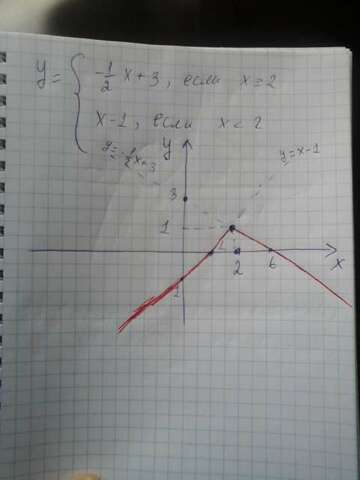 y = { -1/2 x + 3, если x ≥ 2
x - 1, если x < 2
y = -1/2 x + 3
y
y = x - 1
3
1
1
2
6
x